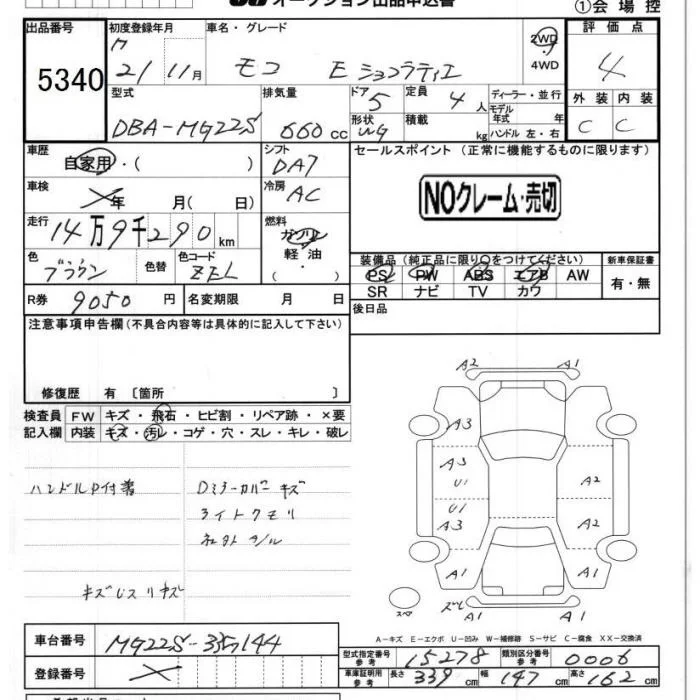 オークション出品申込書
①会場控
出品番号
5340
初度登録年月
21年11月
車名・グレード
モコ E ショコラティエ
2WD
4WD
評価点
4
外装 内装
C C
型式
DBA-MG22S
排気量
660cc
ドア
5
形状
WG
定員
4人
積載
kg
ディーラー・並行
モデル年式 年
ハンドル 左・右
車歴
自家用・( )
シフト
DA7
セールスポイント(正常に機能するものに限ります)
NOクレーム・売切
車検
年 月( 日)
冷房
AC
走行
14万9千290km
燃料
ガソリン
軽油
・
色
ブラウン
色替
色コード
ZEL
装備品(純正品に限り○をつけてください)
PS PW ABS エアB AW
SR ナビ TV カワ
新車保証書
有・無
R券
9050円
名変期限 月 日
後日品
注意事項申告欄(不具合内容等は具体的に記入して下さい)
修復歴 有〔箇所 〕
検査員記入欄
FW キズ・飛石・ヒビ割・リペア跡・×要
内装 キズ・汚レ・コゲ・穴・スレ・キレ・破レ
Dミラーカバーキズ
ライトクモリ
A2 A1
A3
A3 U1
A2
U1 A3
A2
A1 A1
A1
スペア
A−キズ E−エクボ U−凹み W−補修跡 S−サビ C−腐食 XX−交換済
車台番号
MG22S-335144
登録番号
型式指定番号 参考
15278
類別区分番号 参考
0006
車庫証明用 参考
長さ 339cm 幅 147cm 高さ 162cm